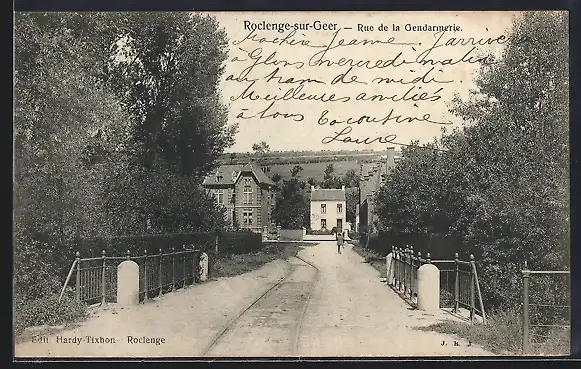 Roclenge-sur-Geer — Rue de la Gendarmerie.
Jeanne, J'arrive
à Glons mercredi matin
au tram de midi.
Meilleures amitiés
à tous
Laure
Edit Hardy-Tixhon Roclenge
J. K. J.